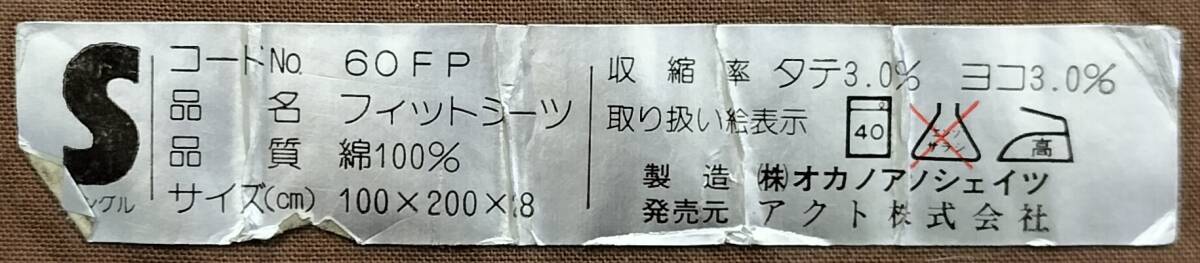 S
ングル
コードNo. 60FP
品名 フィットシーツ
品質 綿100%
サイズ(cm) 100×200×28
収縮率 タテ3.0% ヨコ3.0%
取り扱い絵表示 40 エンソ サラシ 高
製造 ㈱オカノアソシェイツ
発売元 アクト株式会社